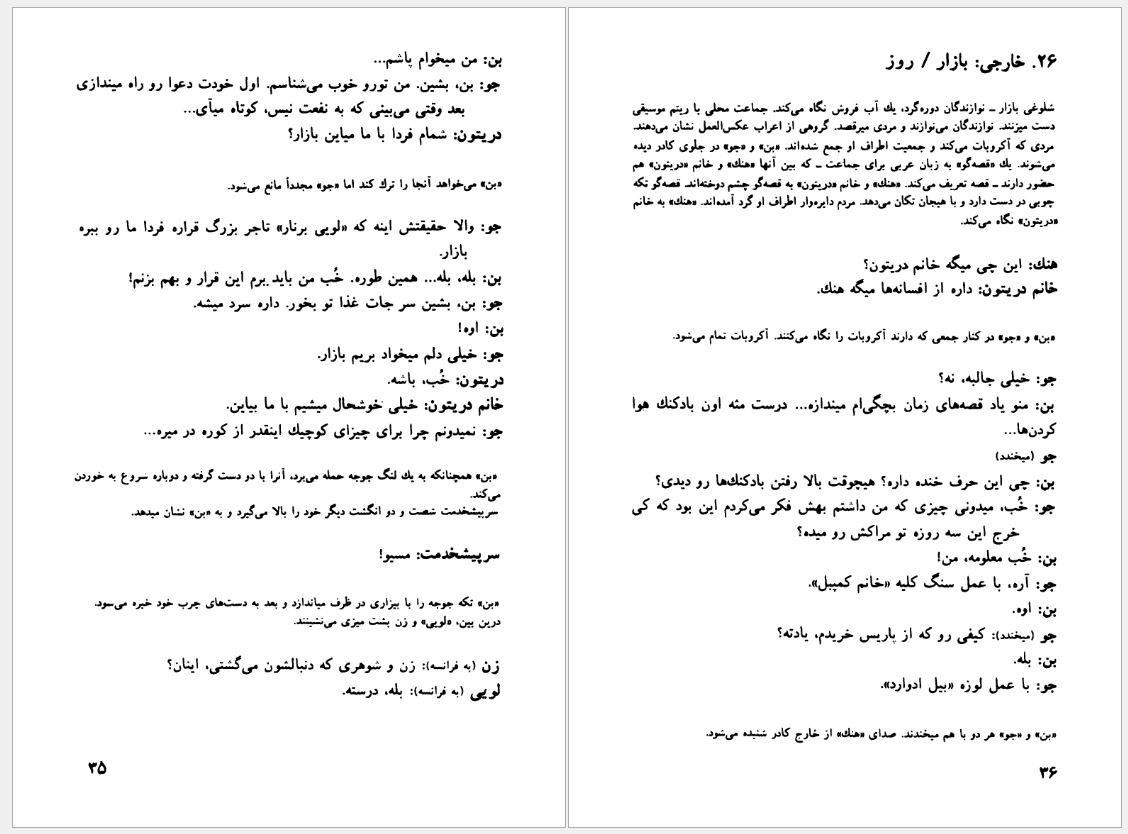 بن: من میخوام پاشم...
جو: بن، بشین. من تورو خوب می‌شناسم. اول خودت دعوا رو راه میندازی
بعد وقتی می‌بینی که به نفعت نیس، کوتاه میآی...
دریتون: شمام فردا با ما میاین بازار؟
«بن» می‌خواهد آنجا را ترك کند اما «جو» مجدداً مانع می‌شود.
جو: والا حقیقتش اینه که «لویی برنار» تاجر بزرگ قراره فردا ما رو ببره
بازار.
بن: بله، بله... همین طوره. خُب من باید برم این قرار و بهم بزنم!
جو: بن، بشین سر جات غذا تو بخور. داره سرد میشه.
بن: اوه!
جو: خیلی دلم میخواد بریم بازار.
دریتون: خُب، باشه.
خانم دریتون: خیلی خوشحال میشیم با ما بیاین.
جو: نمیدونم چرا برای چیزای کوچیك اینقدر از کوره در میره...
«بن» همچنانکه به یك لنگ جوجه حمله می‌برد، آنرا با دو دست گرفته و دوباره سروع به خوردن
می‌کند.
سرپیشخدمت شصت و دو انگشت دیگر خود را بالا می‌گیرد و به «بن» نشان میدهد.
سرپیشخدمت: مسیو!
«بن» تکه جوجه را با بیزاری در ظرف میاندازد و بعد به دست‌های چرب خود خیره می‌سود.
درین بین، «لویی» و زن پشت میزی می‌نشینند.
زن (به فرانسه): زن و شوهری که دنبالشون می‌گشتی، اینان؟
لویی (به فرانسه): بله، درسته.
۳۵
۲۶. خارجی: بازار / روز
شلوغی بازار ــ نوازندگان دوره‌گرد، یك آب فروش نگاه می‌کند. جماعت محلی با ریتم موسیقی
دست میزنند. نوازندگان می‌نوازند و مردی میرقصد. گروهی از اعراب عکس‌العمل نشان می‌دهند.
مردی که آکروبات می‌کند و جمعیت اطراف او جمع شده‌اند. «بن» و «جو» در جلوی کادر دیده
می‌شوند. یك «قصه‌گو» به زبان عربی برای جماعت ــ که بین آنها «هنك» و خانم «دریتون» هم
حضور دارند ــ قصه تعریف می‌کند. «هنك» و خانم «دریتون» به قصه‌گو چشم دوخته‌اند. قصه‌گو تکه
چوبی در دست دارد و با هیجان تکان می‌دهد. مردم دایره‌وار اطراف او گرد آمده‌اند. «هنك» به خانم
«دریتون» نگاه می‌کند.
هنك: این چی میگه خانم دریتون؟
خانم دریتون: داره از افسانه‌ها میگه هنك.
«بن» و «جو» در کنار جمعی که دارند آکروبات را نگاه می‌کنند. آکروبات تمام می‌شود.
جو: خیلی جالبه، نه؟
بن: منو یاد قصه‌های زمان بچگی‌ام میندازه... درست مثه اون بادکنك هوا
کردن‌ها...
جو (میخندد)
بن: چی این حرف خنده داره؟ هیچوقت بالا رفتن بادکنك‌ها رو دیدی؟
جو: خُب، میدونی چیزی که من داشتم بهش فکر می‌کردم این بود که کی
خرج این سه روزه تو مراکش رو میده؟
بن: خُب معلومه، من!
جو: آره، با عمل سنگ کلیه «خانم کمپبل».
بن: اوه.
جو (میخندد): کیفی رو که از پاریس خریدم، یادته؟
بن: بله.
جو: با عمل لوزه «بیل ادوارد».
«بن» و «جو» هر دو با هم میخندند. صدای «هنك» از خارج کادر شنیده می‌شود.
۳۶